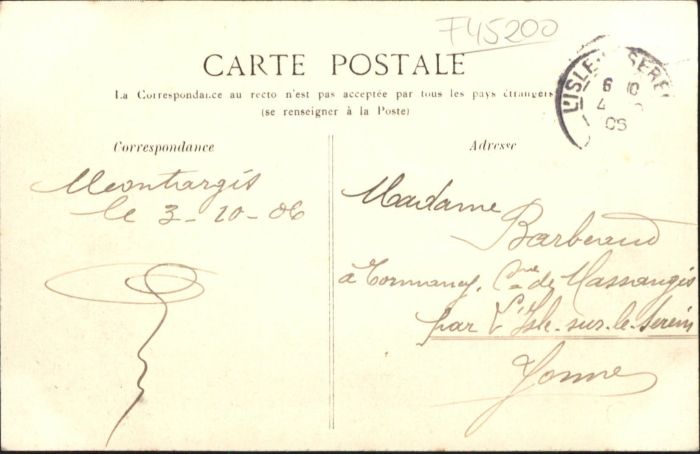 F45200
CARTE POSTALE
La Correspondance au recto n'est pas acceptée par tous les pays étrangers
(se renseigner à la Poste)
L'ISLE SEREIN
6 10
4
06
Correspondance
Montargis
le 3-10-06
Adresse
Madame
Barbeaud
à Tormancy, Cne de Massangis
par L'Isle-sur-le-Serein
Yonne